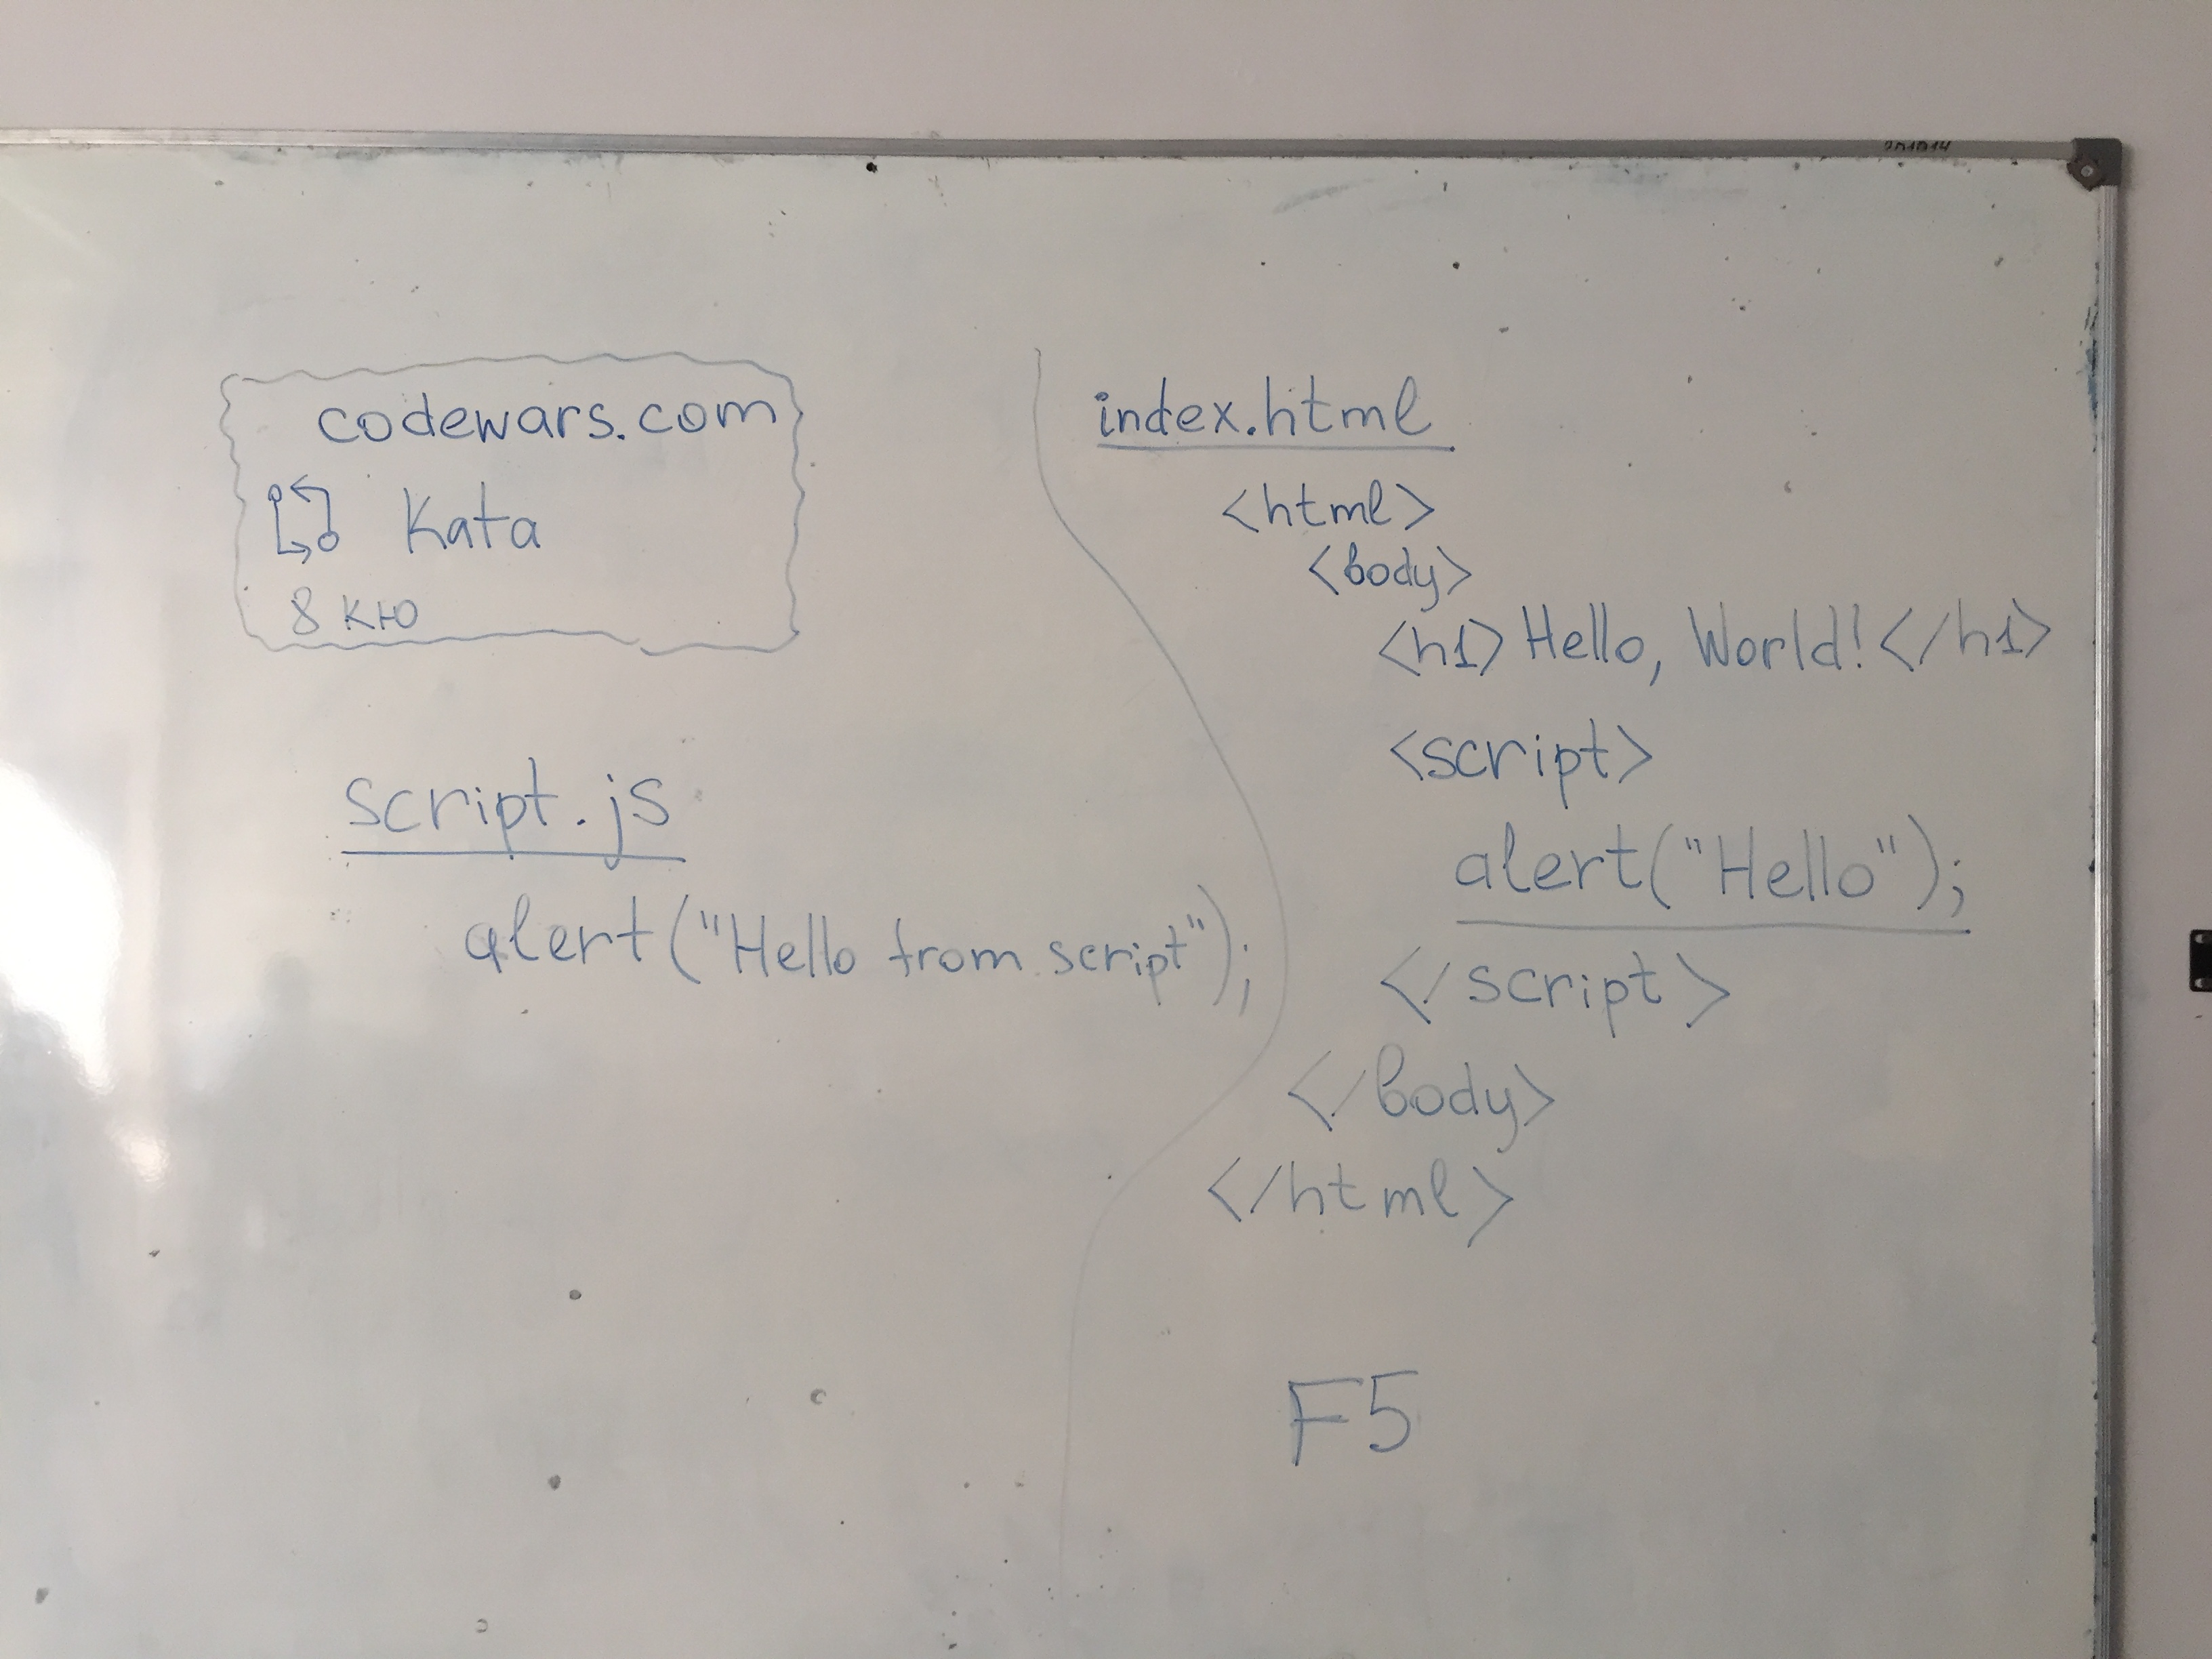 codewars.com
Kata
8 кю
script.js
alert("Hello from script");
index.html
<html>
<body>
<h1>Hello, World!</h1>
<script>
alert("Hello");
</script>
</body>
</html>
F5